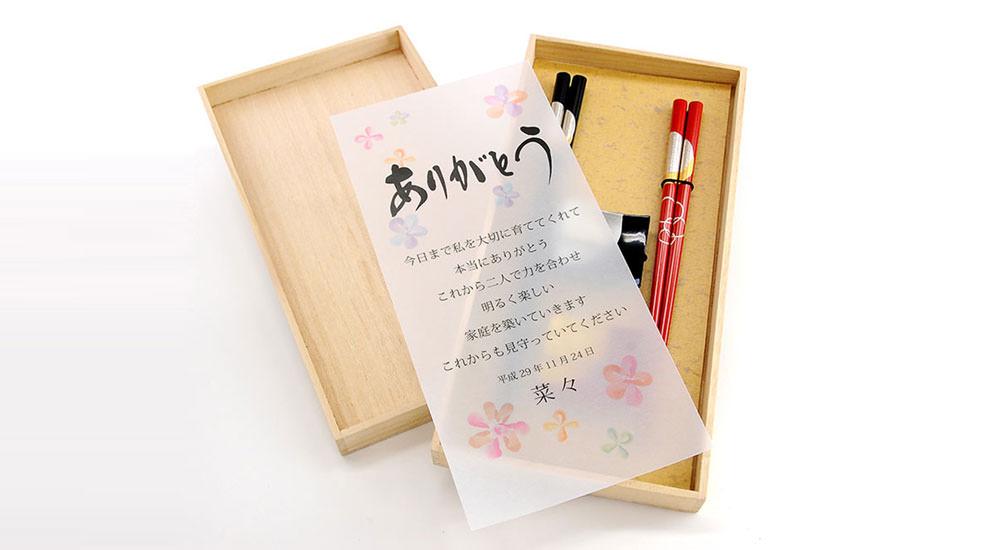 ありがとう
今日まで私を大切に育ててくれて
本当にありがとう
これから二人で力を合わせ
明るく楽しい
家庭を築いていきます
これからも見守っていてください
平成29年11月24日
菜々